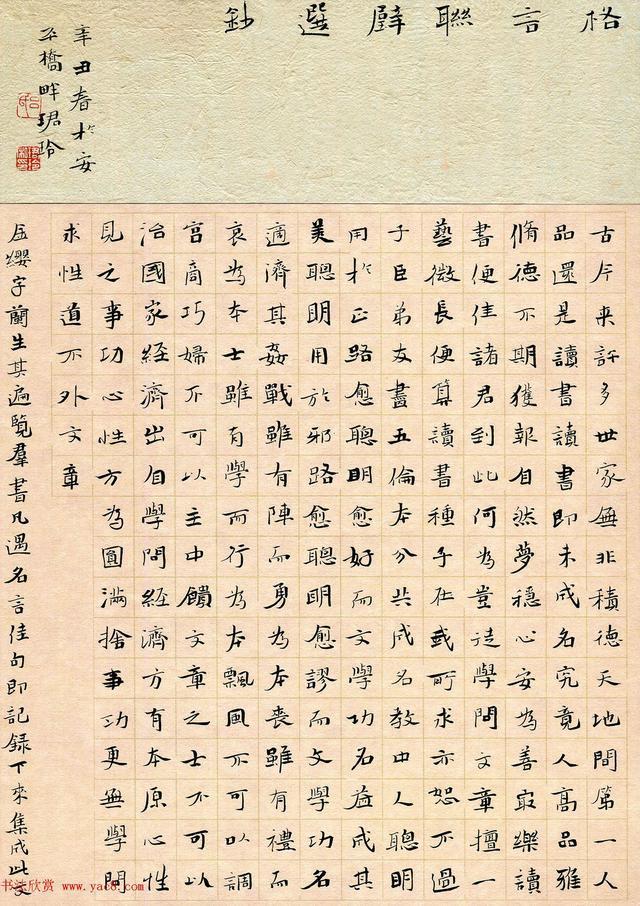 格言聯璧選鈔
辛丑春於安
平橋畔珺玲
古今来許多世家無非積德天地間第一人
品還是讀書讀書即未成名究竟人高品雅
脩德不期獲報自然夢穩心安為善最樂讀
書便佳諸君到此何為豈徒學問文章擅一
藝微長便算讀書種子在我所求亦恕不過
子臣弟友盡五倫本分共成名教中人聰明
用於正路愈聰明愈好而文學功名益成其
美聰明用於邪路愈聰明愈謬而文學功名
適濟其姦戰雖有陣而勇為本喪雖有禮而
哀為本士雖有學而行為本飄風不可以調
宮商巧婦不可以主中饋文章之士不可以
治國家經濟出自學問經濟方有本原心性
見之事功心性方為圓滿捨事功更無學問
求性道不外文章
金纓字蘭生其遍覽羣書凡遇名言佳句即記録下來集成此文
书法欣赏 www.yac8.com